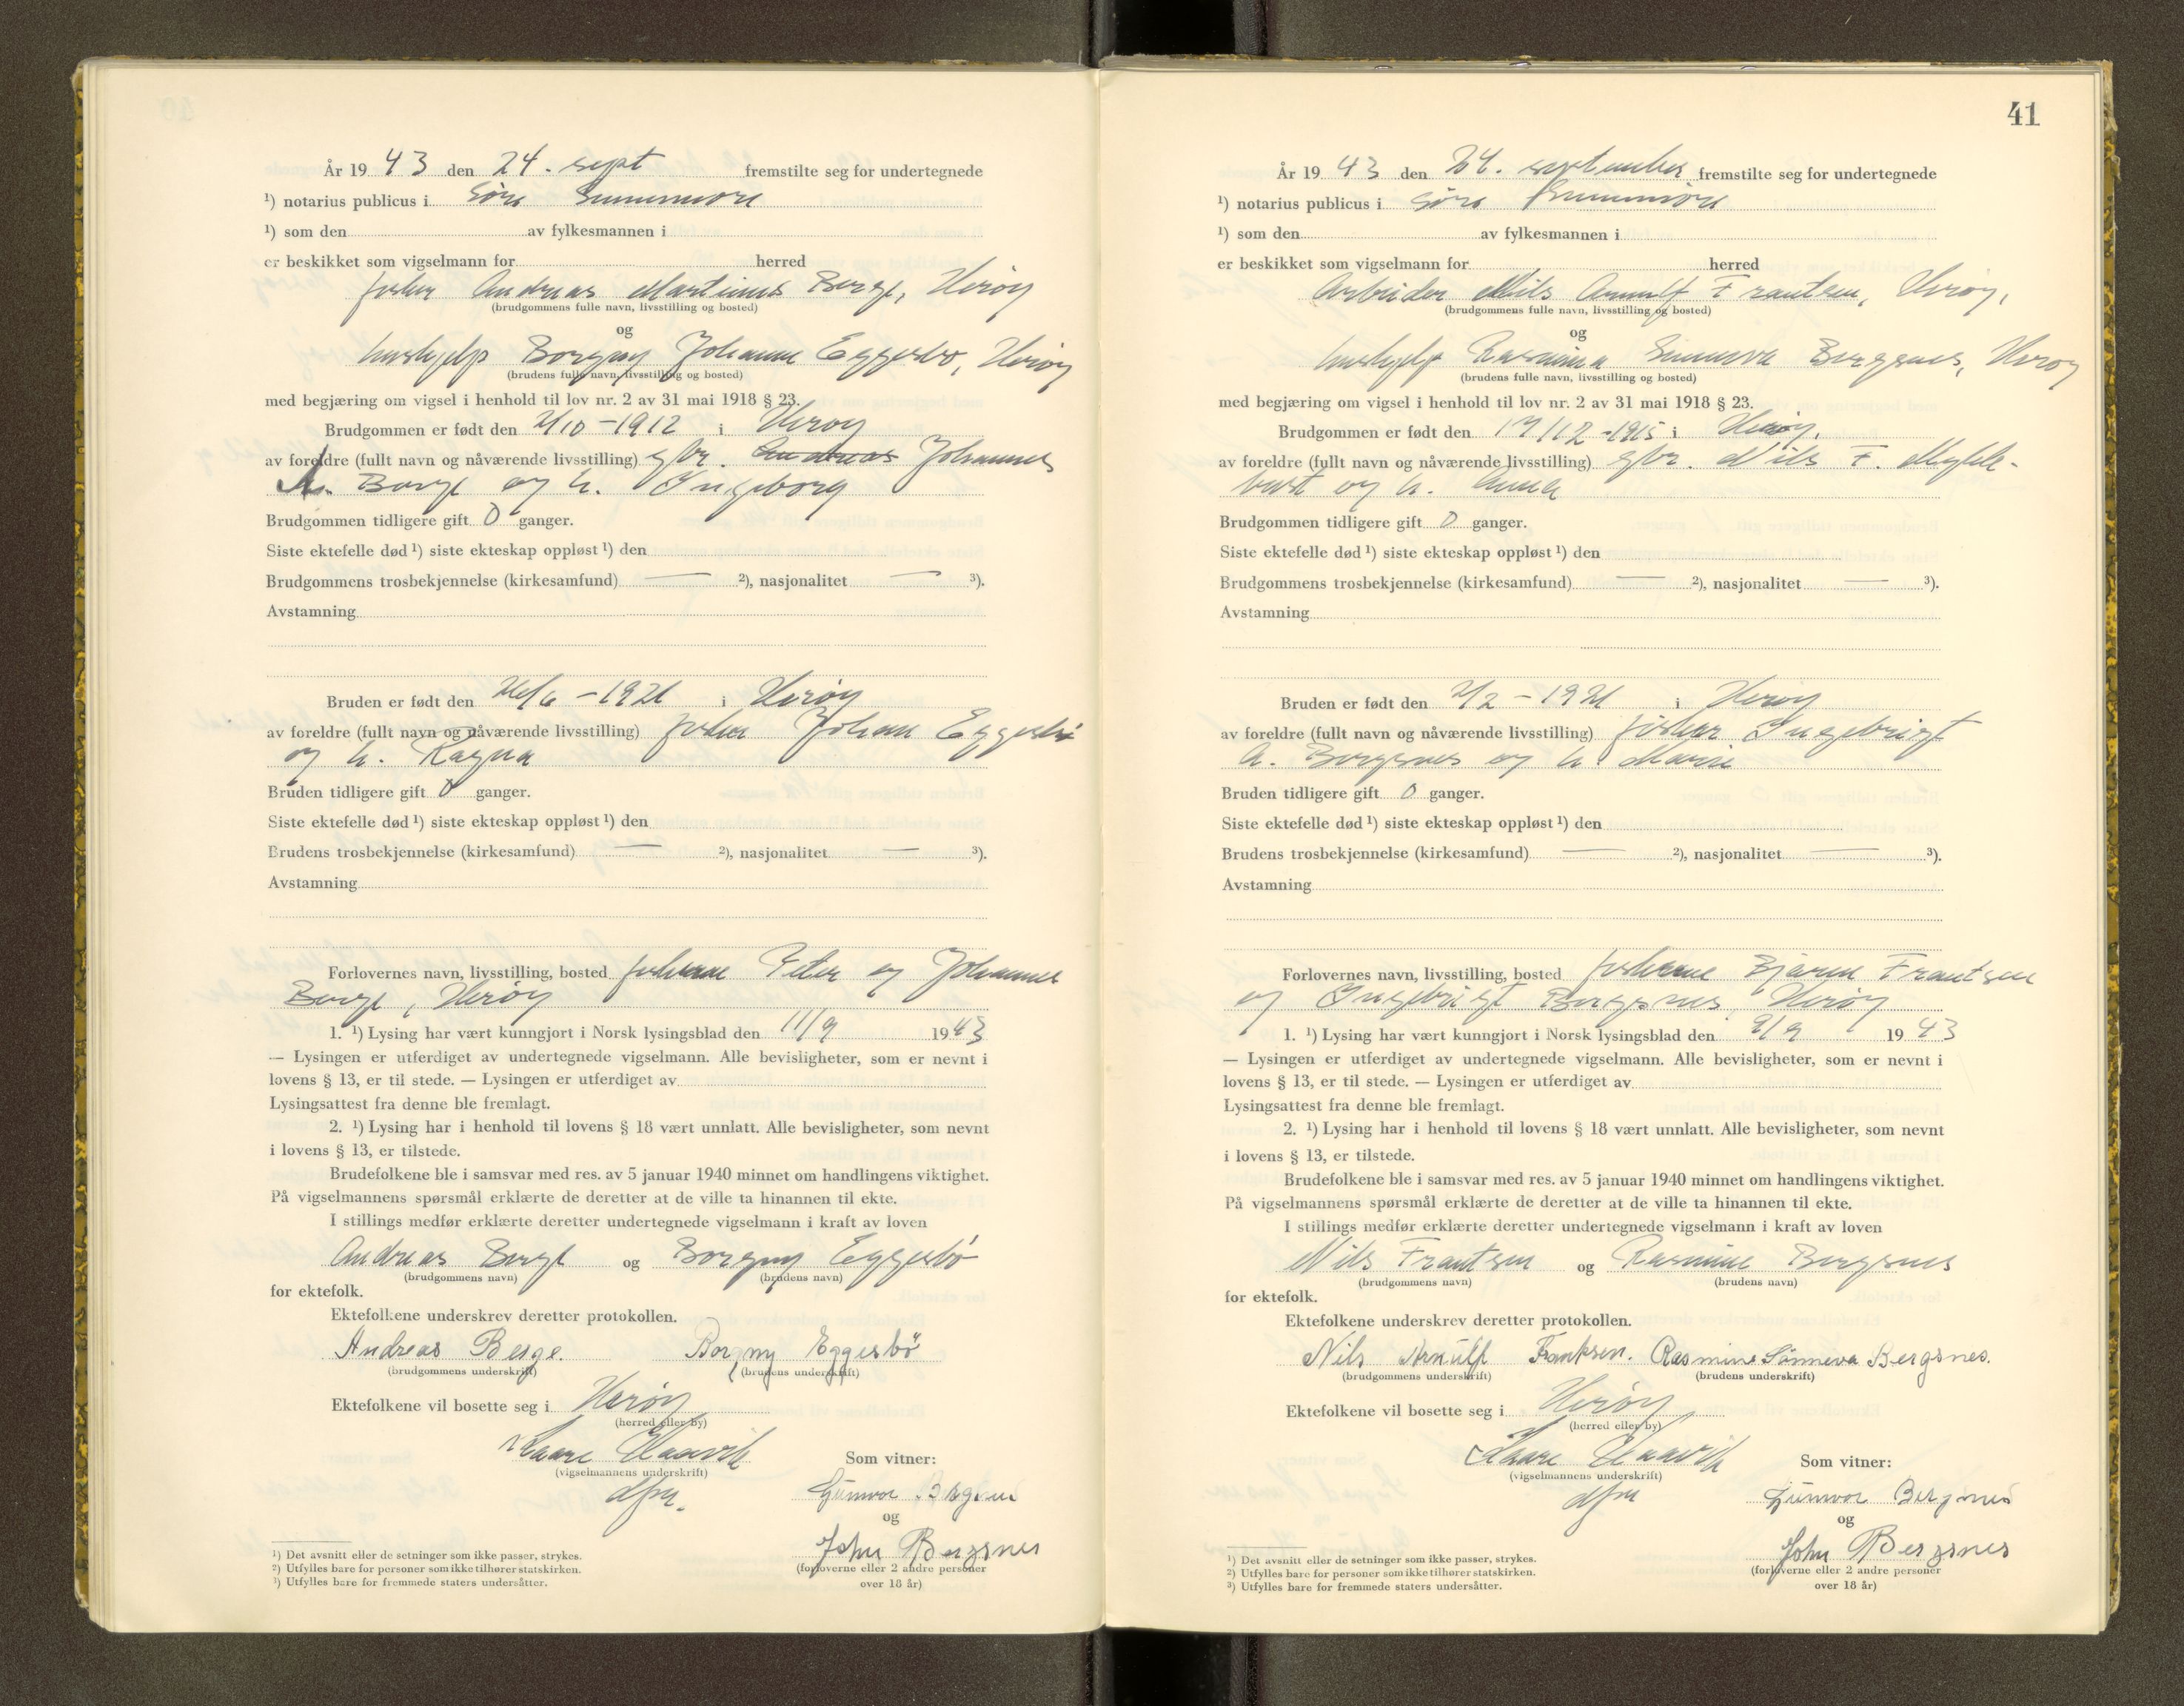 År 19 43 den 24. sept fremstilte seg for undertegnede
¹) notarius publicus i Søre Sunnmøre
¹) som den av fylkesmannen i
er beskikket som vigselmann for herred
fisker Andreas Martinus Berge, Herøy
(brudgommens fulle navn, livsstilling og bosted)
og
hushjelp Borgny Johanne Eggesbø, Herøy
(brudens fulle navn, livsstilling og bosted)
med begjæring om vigsel i henhold til lov nr. 2 av 31 mai 1918 § 23.
Brudgommen er født den 2/10 - 1912 i Herøy
av foreldre (fullt navn og nåværende livsstilling) gbr. Andreas Johannes
A. Berge og h. Ingeborg
Brudgommen tidligere gift 0 ganger.
Siste ektefelle død ¹) siste ekteskap oppløst ¹) den
Brudgommens trosbekjennelse (kirkesamfund) — ²), nasjonalitet — ³).
Avstamning
Bruden er født den /6 - 1921 i Herøy
av foreldre (fullt navn og nåværende livsstilling) fisker Johan Eggesbø
og h. Ragna
Bruden tidligere gift 0 ganger.
Siste ektefelle død ¹) siste ekteskap oppløst ¹) den
Brudens trosbekjennelse (kirkesamfund) — ²), nasjonalitet — ³).
Avstamning
Forlovernes navn, livsstilling, bosted fiskerne Peter og Johannes
Berge, Herøy
1. ¹) Lysing har vært kunngjort i Norsk lysingsblad den 11/9 1943
— Lysingen er utferdiget av undertegnede vigselmann. Alle bevisligheter, som er nevnt i
lovens § 13, er til stede. — Lysingen er utferdiget av
Lysingsattest fra denne ble fremlagt.
2. ¹) Lysing har i henhold til lovens § 18 vært unnlatt. Alle bevisligheter, som nevnt
i lovens § 13, er tilstede.
Brudefolkene ble i samsvar med res. av 5 januar 1940 minnet om handlingens viktighet.
På vigselmannens spørsmål erklærte de deretter at de ville ta hinannen til ekte.
I stillings medfør erklærte deretter undertegnede vigselmann i kraft av loven
Andreas Berge og Borgny Eggesbø
(brudgommens navn) (brudens navn)
for ektefolk.
Ektefolkene underskrev deretter protokollen.
Andreas Berge. Borgny Eggesbö
(brudgommens underskrift) (brudens underskrift)
Ektefolkene vil bosette seg i Herøy
(herred eller by)
Kaare Haavik
(vigselmannens underskrift)
dfm.
Som vitner:
Gunvor Bergsnes
og
John Bergsnes
(forloverne eller 2 andre personer
over 18 år)
¹) Det avsnitt eller de setninger som ikke passer, strykes.
²) Utfylles bare for personer som ikke tilhører statskirken.
³) Utfylles bare for fremmede staters undersåtter.
41
År 19 43 den 24. september fremstilte seg for undertegnede
¹) notarius publicus i Søre Sunnmøre
¹) som den av fylkesmannen i
er beskikket som vigselmann for herred
Arbeider Nils Arnulf Frantsen, Herøy,
(brudgommens fulle navn, livsstilling og bosted)
og
hushjelp Rasmina Sunneva Bergsnes, Herøy
(brudens fulle navn, livsstilling og bosted)
med begjæring om vigsel i henhold til lov nr. 2 av 31 mai 1918 § 23.
Brudgommen er født den 17/12 - 1915 i Herøy.
av foreldre (fullt navn og nåværende livsstilling) gbr. Nils F. Mykle-
bust og h. Anna
Brudgommen tidligere gift 0 ganger.
Siste ektefelle død ¹) siste ekteskap oppløst ¹) den
Brudgommens trosbekjennelse (kirkesamfund) — ²), nasjonalitet — ³).
Avstamning
Bruden er født den 2/2 - 1921 i Herøy
av foreldre (fullt navn og nåværende livsstilling) fisker Ingebrigt
A. Bergsnes og h. Marie
Bruden tidligere gift 0 ganger.
Siste ektefelle død ¹) siste ekteskap oppløst ¹) den
Brudens trosbekjennelse (kirkesamfund) — ²), nasjonalitet — ³).
Avstamning
Forlovernes navn, livsstilling, bosted fiskerne Bjarne Frantsen
og Ingebrigt Bergsnes, Herøy
1. ¹) Lysing har vært kunngjort i Norsk lysingsblad den 9/9 1943
— Lysingen er utferdiget av undertegnede vigselmann. Alle bevisligheter, som er nevnt i
lovens § 13, er til stede. — Lysingen er utferdiget av
Lysingsattest fra denne ble fremlagt.
2. ¹) Lysing har i henhold til lovens § 18 vært unnlatt. Alle bevisligheter, som nevnt
i lovens § 13, er tilstede.
Brudefolkene ble i samsvar med res. av 5 januar 1940 minnet om handlingens viktighet.
På vigselmannens spørsmål erklærte de deretter at de ville ta hinannen til ekte.
I stillings medfør erklærte deretter undertegnede vigselmann i kraft av loven
Nils Frantsen og Rasmine Bergsnes
(brudgommens navn) (brudens navn)
for ektefolk.
Ektefolkene underskrev deretter protokollen.
Nils Arnulf Frantsen. Rasmine Sünneva Bergsnes.
(brudgommens underskrift) (brudens underskrift)
Ektefolkene vil bosette seg i Herøy
(herred eller by)
Kaare Haavik
(vigselmannens underskrift)
dfm
Som vitner:
Gunvor Bergsnes
og
John Bergsnes
(forloverne eller 2 andre personer
over 18 år)
¹) Det avsnitt eller de setninger som ikke passer, strykes.
²) Utfylles bare for personer som ikke tilhører statskirken.
³) Utfylles bare for fremmede staters undersåtter.